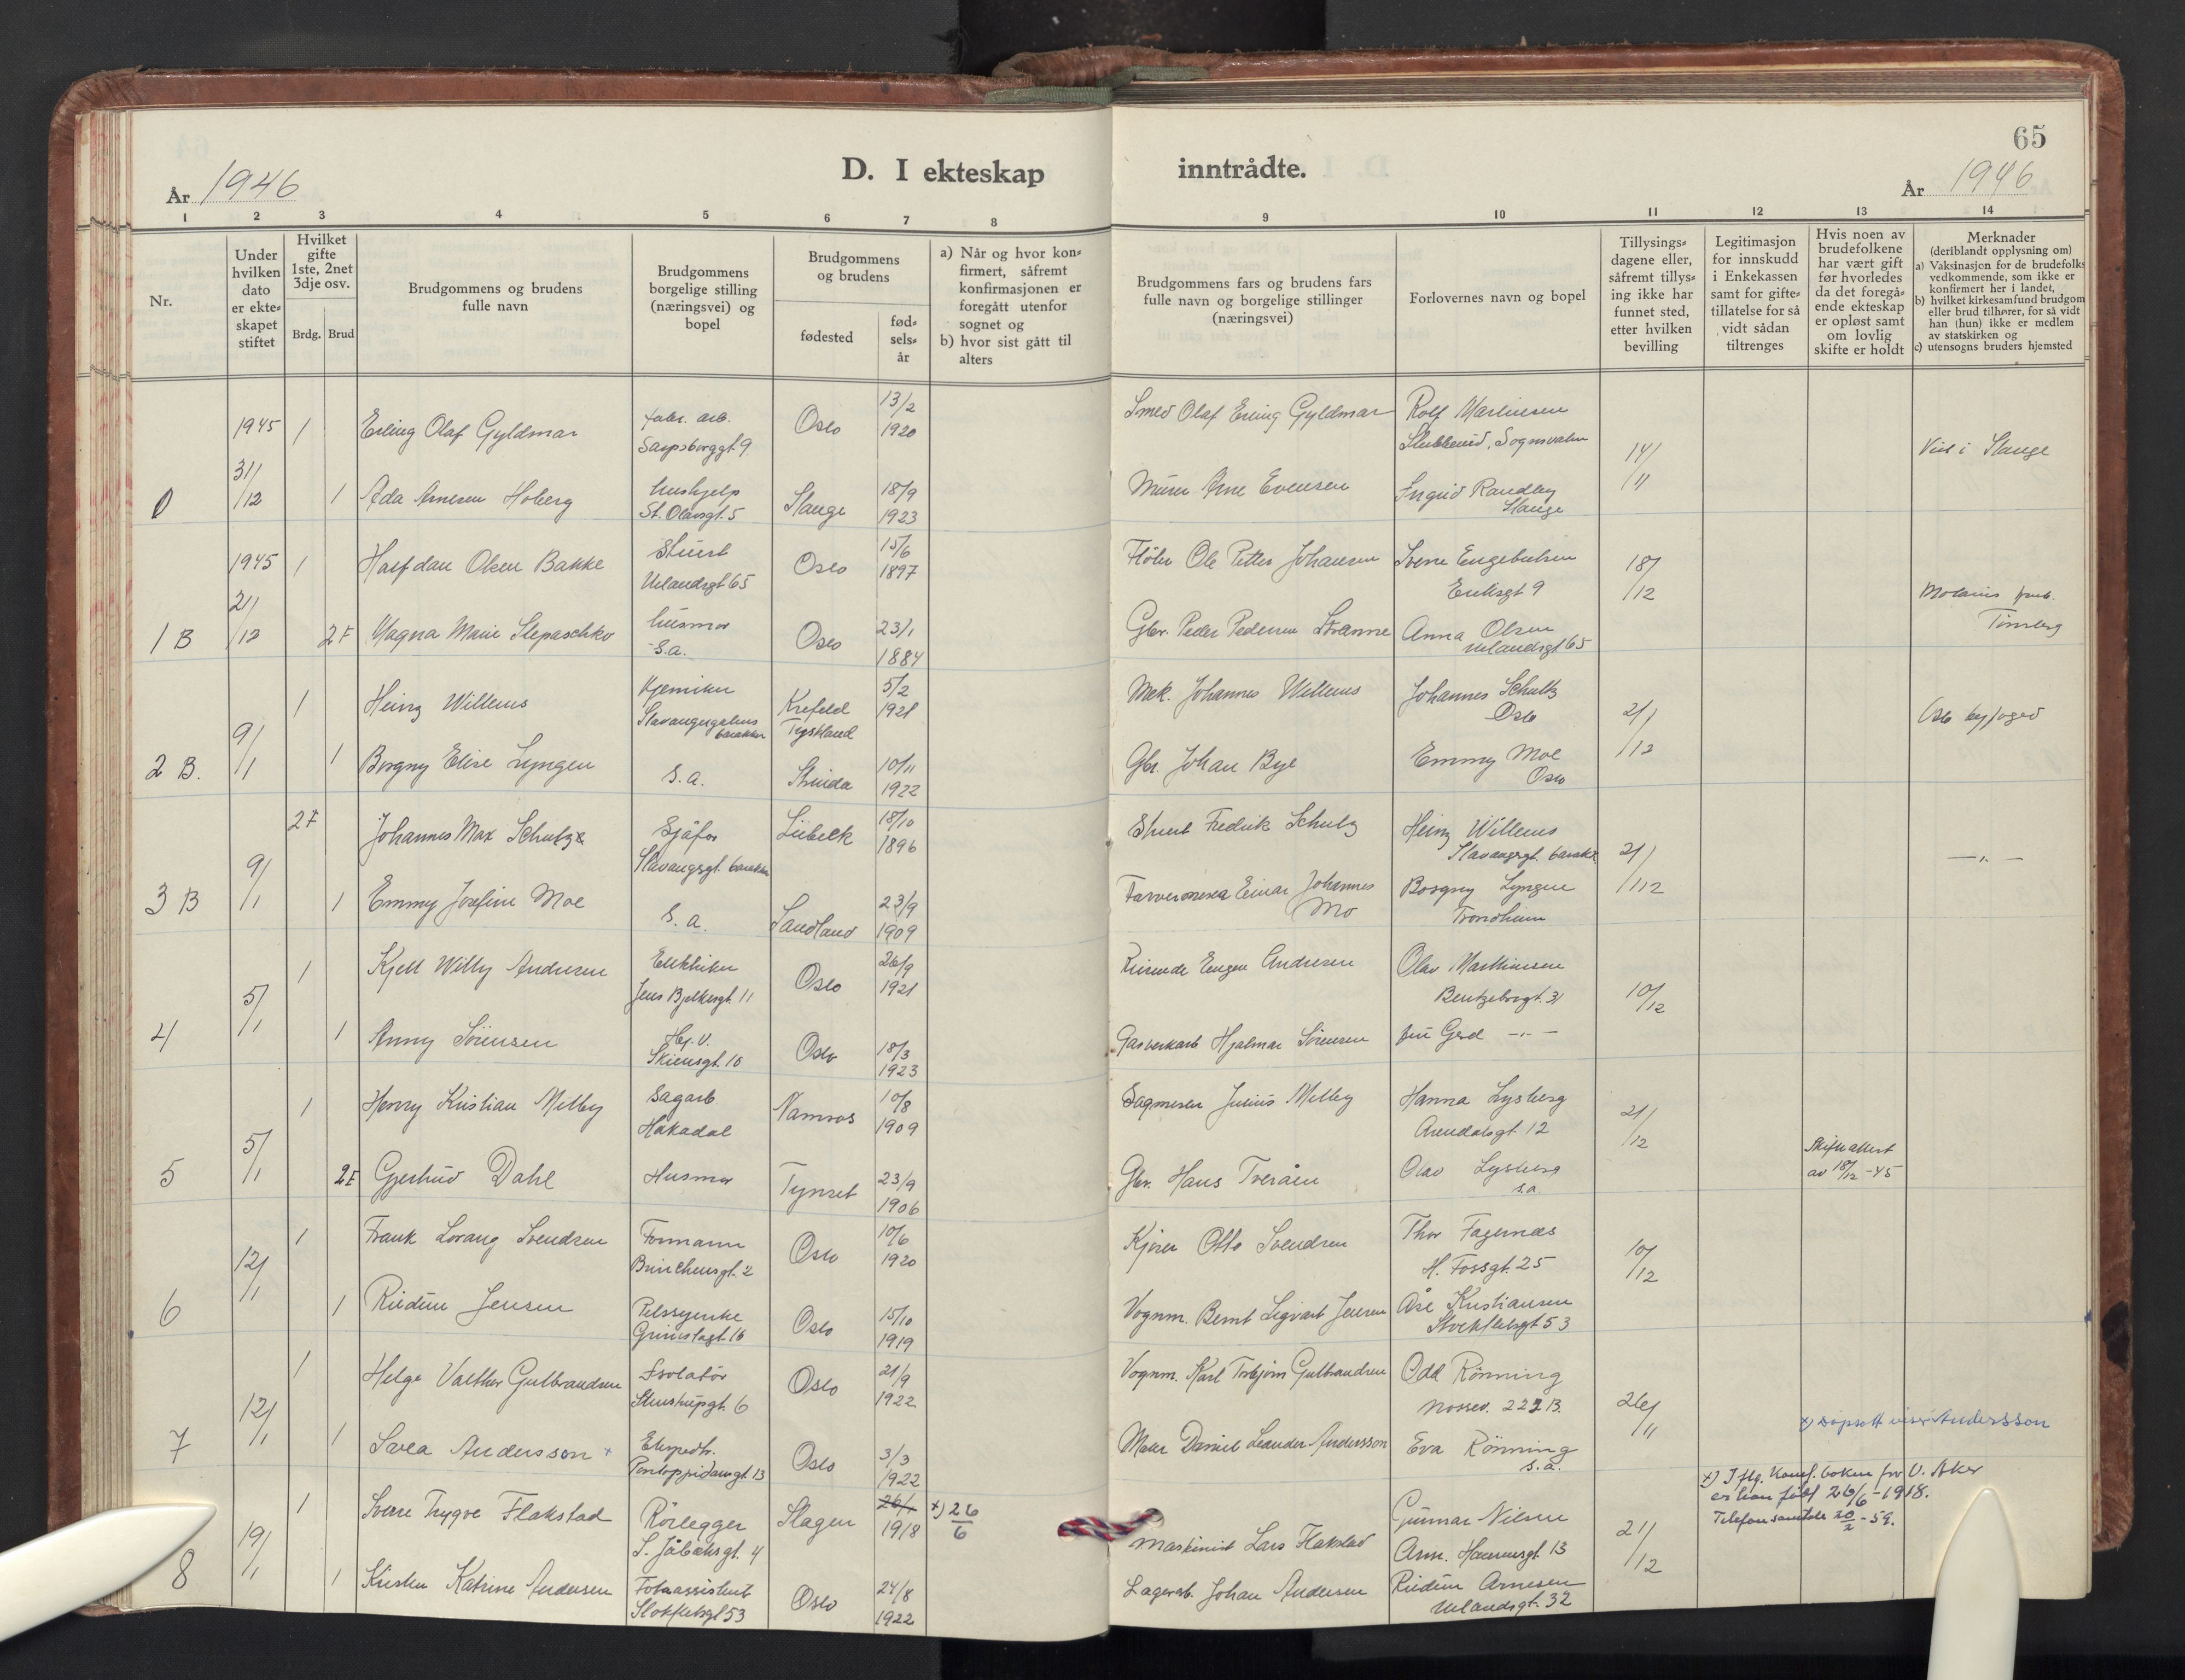 65
D. I ekteskap inntrådte.
År 1946
År 1946
1 2 3 4 5 6 7 8 9 10 11 12 13 14
Nr.
Under hvilken dato er ekte-skapet stiftet
Hvilket gifte 1ste, 2net 3dje osv.
Brdg. Brud
Brudgommens og brudens fulle navn
Brudgommens borgelige stilling (næringsvei) og bopel
Brudgommens og brudens
fødested
fød-sels-år
a) Når og hvor kon-firmert, såfremt konfirmasjonen er foregått utenfor sognet og
b) hvor sist gått til alters
Brudgommens fars og brudens fars fulle navn og borgelige stillinger (næringsvei)
Forlovernes navn og bopel
Tillysings-dagene eller, såfremt tillys-ing ikke har funnet sted, etter hvilken bevilling
Legitimasjon for innskudd i Enkekassen samt for gifte-tillatelse for så vidt sådan tiltrenges
Hvis noen av brudefolkene har vært gift før hvorledes da det foregå-ende ekteskap er opløst samt om lovlig skifte er holdt
Merknader (deriblandt opplysning om)
a) Vaksinasjon for de brudefolks vedkommende, som ikke er konfirmert her i landet,
b) hvilket kirkesamfund brudgom eller brud tilhører, for så vidt han (hun) ikke er medlem av statskirken og
c) utensogns bruders hjemsted
1945 1 Erling Olaf Gyldmar fabr. arb. Sarpsborggt. 9 Oslo 13/2 1920 Smed Olaf Erling Gyldmar Rolf Martinsen Sognsvatn
0 31/12 1 Ada Arnesen Hoberg hushjelp St. Olavsgt. 5 Stange 18/9 1923 Murer Arne Evensen Ingrid Randby Stange 14/11 Viet i Stange
1945 1 Halfdan Olsen Bakke Stuert Uelandsgt 65 Oslo 15/6 1897 Fløter Ole Petter Johansen Sverre Engebretsen Eriksgt 9
1 B 21/12 2 F Magna Marie Slepaschko husmor s.a. Oslo 23/1 1884 Gbr. Peder Pedersen Anna Olsen Uelandsgt 65 18/12 Tønsberg
1 Heinz Willems Kjemiker Stavangergatens barakker Krefeld Tyskland 5/2 1921 Mek. Johannes Willems Johannes Schultz Oslo
2 B. 9/1 1 Borgny Elise Lyngen s.a. Strinda 10/11 1922 Gbr. Johan Bye Emmy Moe Oslo 21/12 Oslo byfoged
2 F Johannes Max Schulz Sjåfør Stavangsgt. barakker Lübeck 18/10 1896 Stuert Fredrik Schulz Heinz Willems Stavangsgt. barakk.
3 B 9/1 1 Emmy Josefine Moe s.a. Sandland 23/9 1909 Einar Johannes Mo Borgny Lyngen Trondheim 21/12 —„—
1 Kjell Willy Andresen Elektriker Jens Bjelkesgt. 11 Oslo 26/9 1921 Reisende Eugen Andresen Olav Martinsen Bentzebrogt. 31
4 5/1 1 Anny Sørensen Hj.v. Skiensgt. 10 Oslo 18/3 1923 Gasverkarb Hjalmar Sørensen fru Gerd —„— 10/12
1 Henry Kristian Melby Sagarb Hakadal Namsos 10/8 1909 Sagmester Julius Melby Hanna Lysberg Arendalsgt. 12
5 5/1 2 F Gjertrud Dahl Husmor Tynset 23/9 1906 Gbr. Hans Tveråen Olav Lysberg s.a. 21/12 Skifteattest av 18/12-45
1 Frank Lorang Svendsen Formann Brinchensgt. 2 Oslo 10/6 1920 Kjører Otto Svendsen Thor Fagernæs H. Fossgt. 25
6 12/1 1 Reidun Jensen Pelssyerske Grimstagt. 16 Oslo 15/10 1919 Vognm. Bernt Segvart Jensen Åse Kristiansen Stockfletsgt 53 10/12
1 Helge Valther Gulbrandsen Isolatør Stenstrupgt. 6 Oslo 21/9 1922 Vognm. Karl Torbjørn Gulbrandsen Odd Rønning Mossev. 222 B.
7 12/1 1 Svea Andersson + Ekspedtr. Pontoppidansgt. 13 Oslo 3/3 1922 Maler Daniel Leander Andersson Eva Rønning s.a. 26/11 x) Dåpsatt viser Andersson
1 Sverre Trygve Flakstad Rørlegger S. Jåbæksgt. 4 Slagen 26/1 1918 +) 26/6 Maskinist Lars Flakstad Gunnar Nilsen Arm. Hansensgt. 13 +) I flg. konf. boken for V. Aker er han født 26/6-1918. Telefonsamtale 20/2-59.
8 19/1 1 Kirsten Katrine Andersen Fotoassistent Stokfletsgt 53 Oslo 24/8 1922 Lagerarb. Johan Andersen Reidun Arnesen Uelandsgt. 32 21/12